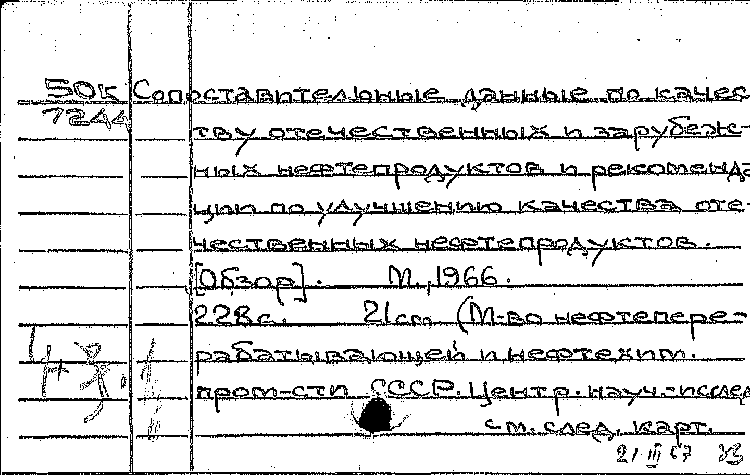 50к Сопоставительные данные по качес
7244
тву отечественных и зарубеж-
ных нефтепродуктов и рекоменда
ции по улучшению качества оте-
чественных нефтепродуктов.
[Обзор]. М., 1966.
228с. 21см (М-во нефтепере-
рабатывающей и нефтехим.
пром-сти СССР. Центр. науч.-исслед
см. след. карт.
21 III 67